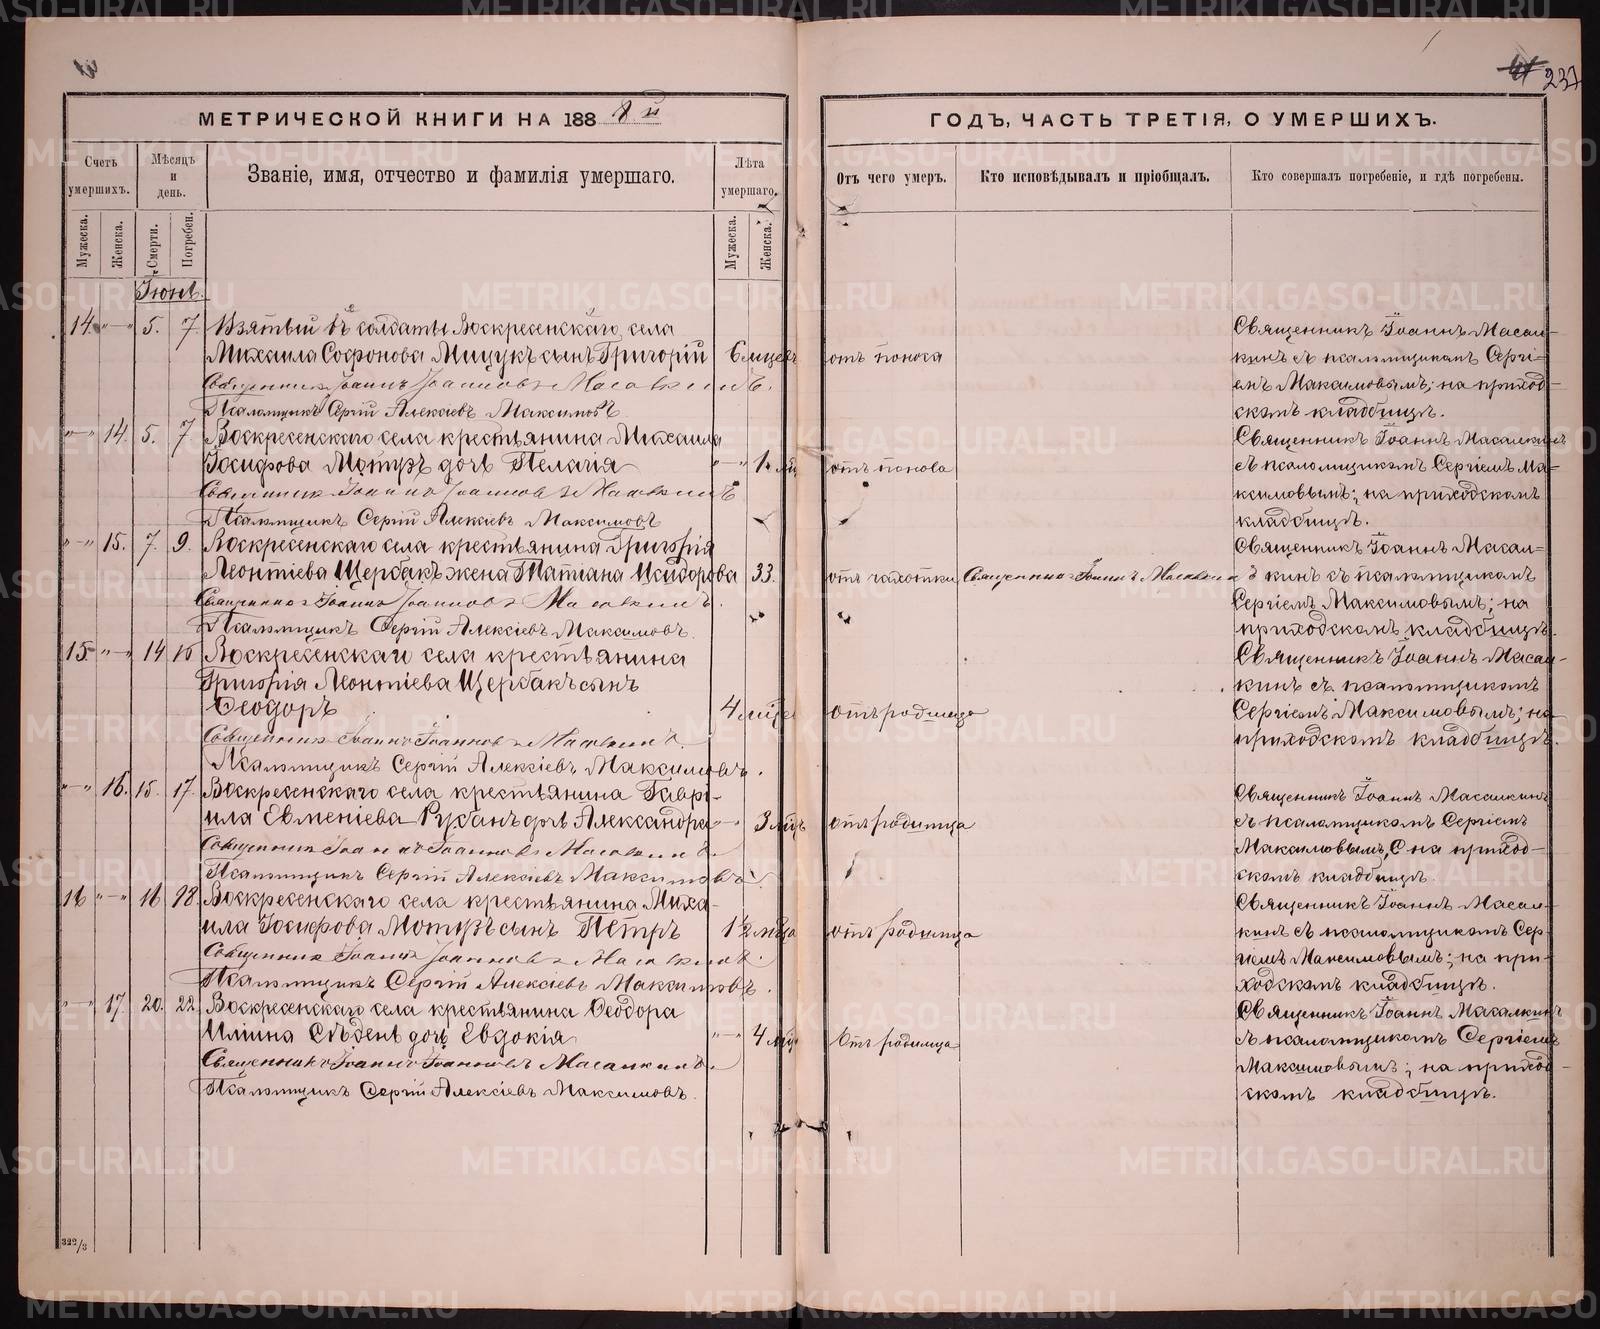 237
МЕТРИЧЕСКОЙ КНИГИ НА 1888й
ГОДЪ, ЧАСТЬ ТРЕТІЯ, О УМЕРШИХЪ.
Счетъ умершихъ.
Мѣсяцъ и день.
Званіе, имя, отчество и фамилія умершаго.
Лѣта умершаго.
Отъ чего умеръ.
Кто исповѣдывалъ и пріобщалъ.
Кто совершалъ погребеніе, и гдѣ погребены.
Мужеска.
Женска.
Смерти.
Погребен.
Мужеска.
Женска.
Іюнь.
14. „—„ 5. 7. Взятый въ солдаты Воскресенскаго села
Михаила Софронова Мицукъ сынъ Григорій 6 мцевъ отъ поноса
Священникъ Іоаннъ Іоанновъ Масалкинъ.
Псаломщикъ Сергій Алексіевъ Максимовъ
Священникъ Іоаннъ Масал-
кинъ съ псаломщикомъ Сергі-
емъ Максимовымъ; на приход-
скомъ кладбищѣ.
„—„ 14. 5. 7 Воскресенскаго села крестьянина Михаила
Іосифова Мотиръ дочь Пелагія „—„ 1. отъ поноса
Священникъ Іоаннъ Іоанновъ Масалкинъ
Псаломщикъ Сергій Алексіевъ Максимовъ
Священникъ Іоаннъ Масалкинъ
съ псаломщикомъ Сергіемъ Ма-
ксимовымъ; на приходскомъ
кладбищѣ.
„—„ 15. 7. 9. Воскресенскаго села крестьянина Григорія
Леонтіева Щербакъ жена Татіана Исидорова 33. отъ чахотки Священникъ Іоаннъ Масалкинъ
Священникъ Іоаннъ Іоанновъ Масалкинъ.
Псаломщикъ Сергій Алексіевъ Максимовъ.
Священникъ Іоаннъ Масал-
кинъ съ псаломщикомъ
Сергіемъ Максимовымъ; на
приходскомъ кладбищѣ.
15 „—„ 14 15 Воскресенскаго села крестьянина
Григорія Леонтіева Щербакъ сынъ
Ѳеодоръ 4 мцев отъ родимца
Священникъ Іоаннъ Іоанновъ Масалкинъ.
Псаломщикъ Сергій Алексіевъ Максимовъ.
Священникъ Іоаннъ Масал-
кинъ съ псаломщикомъ
Сергіемъ Максимовымъ; на
приходскомъ кладбищѣ.
„—„ 16. 15. 17. Воскресенскаго села крестьянина Гаврі-
ила Евменіева Рубанъ дочь Александра „ 3 мцъ отъ родимца
Священникъ Іоаннъ Іоанновъ Масалкинъ.
Псаломщикъ Сергій Алексіевъ Максимовъ.
Священникъ Іоаннъ Масалкинъ
съ псаломщикомъ Сергіемъ
Максимовымъ, на приход-
скомъ кладбищѣ.
16 „—„ 16 18. Воскресенскаго села крестьянина Миха-
ила Іосифова Мотиръ сынъ Петръ 1½ мца отъ родимца
Священникъ Іоаннъ Іоанновъ Масалкинъ.
Псаломщикъ Сергій Алексіевъ Максимовъ.
Священникъ Іоаннъ Масал-
кинъ съ псаломщикомъ Сер-
гіемъ Максимовымъ; на при-
ходскомъ кладбищѣ.
„—„ 17. 20. 22 Воскресенскаго села крестьянина Ѳеодора
Иліина дочь Евдокія „—„ 4 мцъ Отъ родимца
Священникъ Іоаннъ Іоанновъ Масалкинъ.
Псаломщикъ Сергій Алексіевъ Максимовъ.
Священникъ Іоаннъ Масалкинъ
съ псаломщикомъ Сергіемъ
Максимовымъ; на приход-
скомъ кладбищѣ.
322/3
METRIKI.GASO-URAL.RU